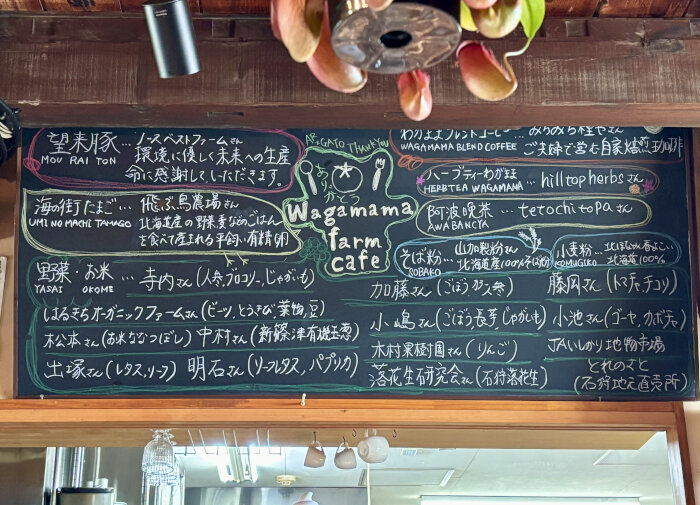 望来豚 … ノースベストファームさん
MOU RAI TON 環境に優しく未来への生産
命に感謝していただきます。
ARIGATO THANKYOU
ありがとう
Wagamama
farm
cafe
WAGAMAMA BLEND COFFEE
ご夫婦で営む自家焙煎珈琲
ハーブティーわがまま
HERBTEA WAGAMAMA … hilltopherbsさん
阿波晩茶 … tetochitopaさん
AWABANCYA
海の街たまご … 飛ぶ鳥農場さん
UMI NO MACHI TAMAGO 北海道産の野菜・麦などのごはん
を食べて産まれる平飼い有精卵
そば粉 … 山加製粉さん
SOBAKO 北海道産100%そば粉
小麦粉 …
KOMUGIKO 北海道100%
野菜・お米 … 寺内さん(人参、ブロッコリー、じゃがいも)
YASAI OKOME
加藤さん(ごぼう)
藤岡さん(トマト、チコリ)
はるきちオーガニックファームさん(ビーツ、とうきび、葉物、豆)
小嶋さん(ごぼう、長芋、じゃがいも)
小池さん(ゴーヤ、カボチャ)
松本さん(お米ななつぼし) 中村さん(新篠津有機玉葱)
木村果樹園さん(りんご)
JAいしかり地物市場
土塚さん(レタス、リーフ) 明石さん(リーフレタス、パプリカ)
落花生研究会さん(石狩落花生)
とれのさと
(石狩地元直売所)